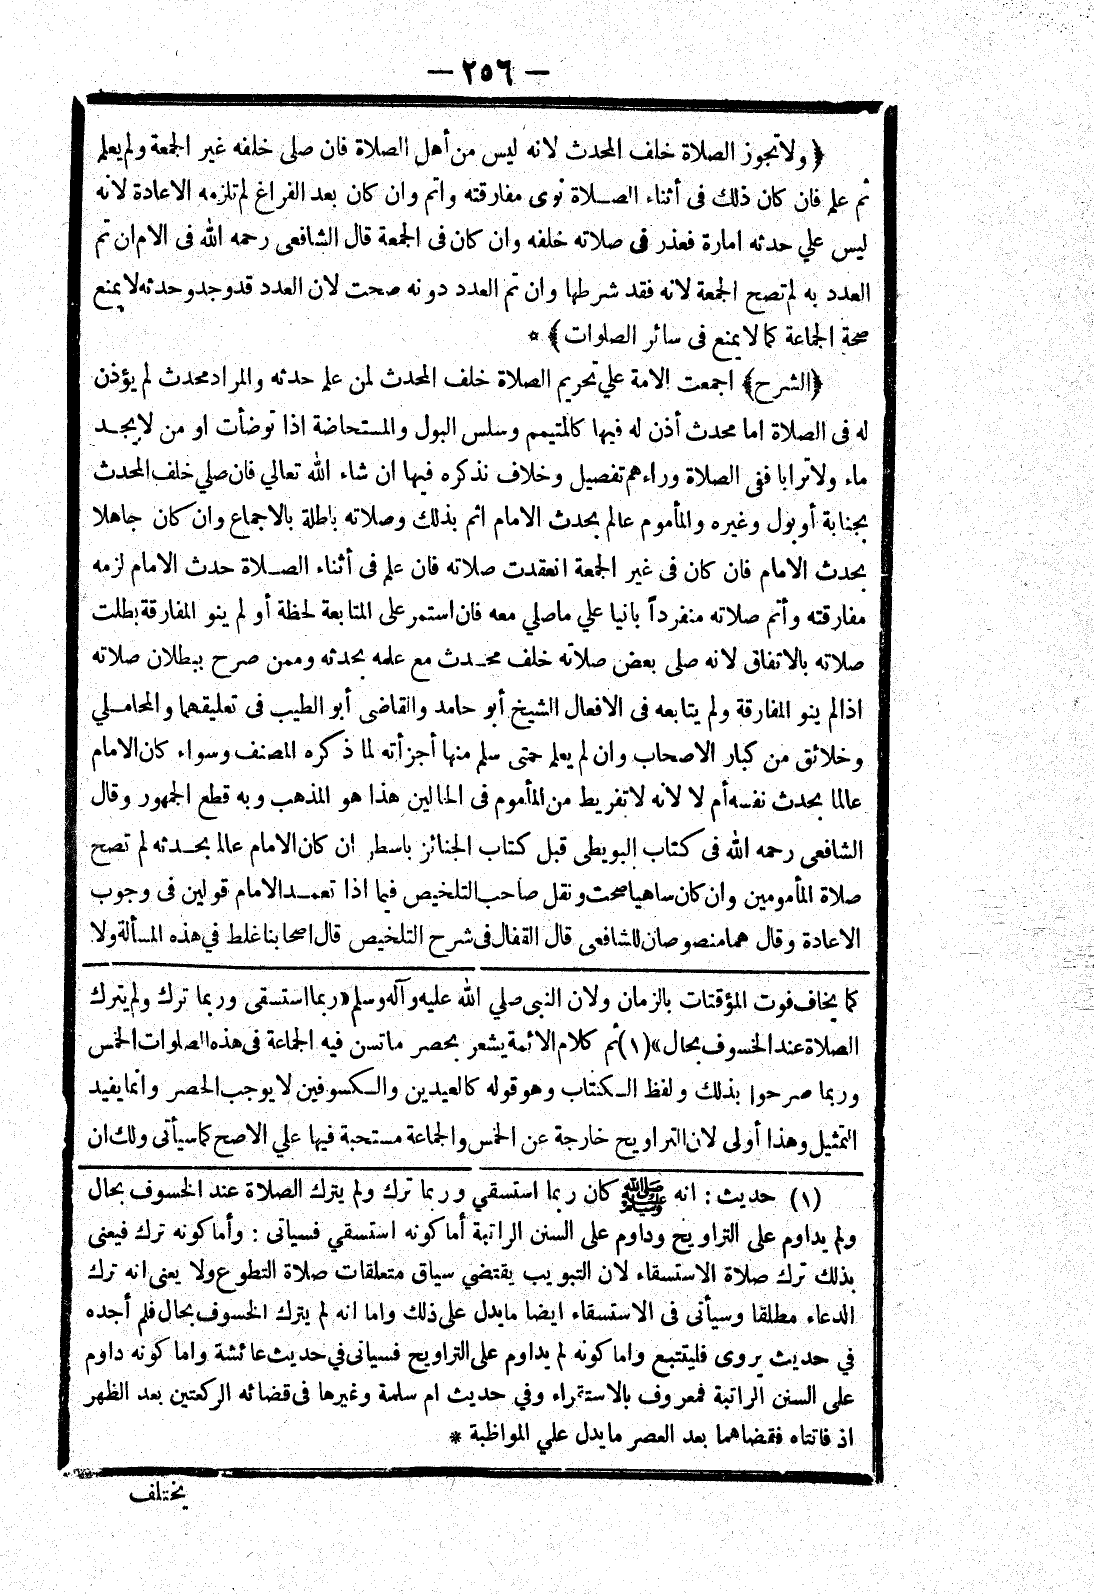 — ٢٥٦ —
﴿ولاتجوز الصلاة خلف المحدث لانه ليس من أهل الصلاة فان صلى خلفه غير الجمعة ولم يعلم
ثم علم فان كان ذلك فى أثناء الصـلاة نوى مفارقته واتم وان كان بعد الفراغ لم تلزمه الاعادة لانه
ليس علي حدثه امارة فعذر فى صلاته خلفه وان كان فى الجمعة قال الشافعى رحمه الله فى الام ان تم
العدد به لم تصح الجمعة لانه فقد شرطها وان تم العدد دونه صحت لان العدد قد وجد وحدثه لا يمنع
صحة الجماعة كما لا يمنع فى سائر الصلوات﴾ *
﴿الشرح﴾ اجمعت الامة علي تحريم الصلاة خلف المحدث لمن علم حدثه والمراد محدث لم يؤذن
له فى الصلاة اما محدث أذن له فيها كالمتيمم وسلس البول والمستحاضة اذا توضأت او من لا يجـد
ماء ولا ترابا ففى الصلاة وراءهم تفصيل وخلاف نذكره فيها ان شاء الله تعالي فان صلي خلف المحدث
بجنابة أو بول وغيره والمأموم عالم بحدث الامام اثم بذلك وصلاته باطلة بالاجماع وان كان جاهلا
بحدث الامام فان كان فى غير الجمعة انعقدت صلاته فان علم فى أثناء الصـلاة حدث الامام لزمه
مفارقته وأتم صلاته منفرداً بانيا علي ما صلي معه فان استمر على المتابعة لحظة أو لم ينو المفارقة بطلت
صلاته بالاتفاق لانه صلى بعض صلاته خلف محـدث مع علمه بحدثه وممن صرح ببطلان صلاته
اذا لم ينو المفارقة ولم يتابعه فى الافعال الشيخ أبو حامد والقاضى أبو الطيب فى تعليقهما والمحامـلي
وخلائق من كبار الاصحاب وان لم يعلم حتى سلم منها أجزأته لما ذكره المصنف وسواء كان الامام
عالما بحدث نفسه أم لا لانه لا تفريط من المأموم فى الحالين هذا هو المذهب وبه قطع الجمهور وقال
الشافعى رحمه الله فى كتاب البويطى قبل كتاب الجنائز باسطر ان كان الامام عالما بحـدثه لم تصح
صلاة المأمومين وان كان ساهيا صحت ونقل صاحب التلخيص فيما اذا تعمـد الامام قولين فى وجوب
الاعادة وقال هما منصوصان للشافعى قال القفال فى شرح التلخيص قال اصحابنا غلط في هذه المسألة ولا
كما يخاف فوت المؤقتات بالزمان ولان النبى صلي الله عليه وآله وسلم «ربما استسقى وربما ترك ولم يترك
الصلاة عند الخسوف بحال» (١) ثم كلام الائمة يشعر بحصر ما تسن فيه الجماعة فى هذه الصلوات الخمس
وربما صرحوا بذلك ولفظ الـكتاب وهو قوله كالعيدين والـكسوفين لا يوجب الحصر وانما يفيد
التمثيل وهذا أولى لان التراويح خارجة عن الخمس والجماعة مستحبة فيها علي الاصح كما سيأتى ولك ان
(١) حديث: انه ﷺ كان ربما استسقي وربما ترك ولم يترك الصلاة عند الخسوف بحال
ولم يداوم على التراويح وداوم على السنن الراتبة أما كونه استسقي فسياتى: وأما كونه ترك فيعنى
بذلك ترك صلاة الاستسقاء لان التبويب يقتضي سياق متعلقات صلاة التطوع ولا يعنى انه ترك
الدعاء مطلقا وسيأتى فى الاستسقاء ايضا ما يدل على ذلك واما انه لم يترك الخسوف بحال فلم أجده
في حديث يروى فليتتبع واما كونه لم يداوم على التراويح فسياتى في حديث عائشة واما كونه داوم
على السنن الراتبة فمعروف بالاستقراء وفي حديث ام سلمة وغيرها فى قضائه الركعتين بعد الظهر
اذ فاتتاه فقضاهما بعد العصر ما يدل علي المواظبة *
يختلف